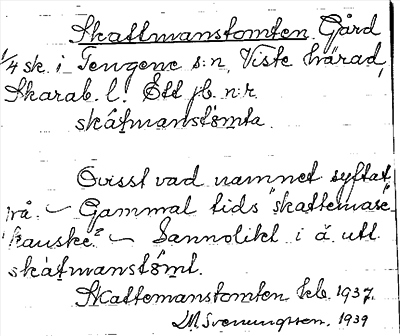 Skattmanstomten Gård
1/4 sk. i Tengene s:n, Viste härad,
Skarab. l. Ett jb. n:r
skátmanstömta
Ovisst vad namnet syftat
på. – Gammal tids "skattemase"
kanske? – Sannolikt i ä. utt.
skátmanstömt.
Skattemanstomten kb. 1937.
M. Svenungsson. 1939